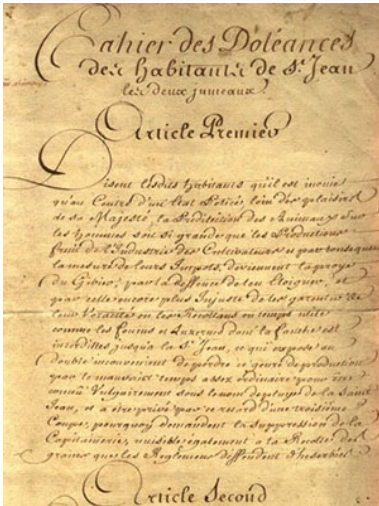 Cahier des Doléances
des habitants de St. Jean
les deux jumeaux
Article Premier
Disent lesdits habitants qu'il est inouie
qu'au Centre d'un Etat Policé, loin des plaisirs
de sa Majesté, la Prédilection des Animaux sur
les hommes soit si grande que les Productions
fruit de l'Industrie des Cultivateurs et par conséquent
la mesure de leurs Impots, deviennent la proye
du Gibier; par la deffence de l'en Eloigner, et
par celle encore plus Injuste de les garentir de
leur Voracité en les Récoltans en temps utile
comme les foins et Luzernes dont la fauche est
interdittes jusqu'à la St. Jean, ce qui expose au
double inconvenient de perdre ce genre de production
par le mauvais temps assez ordinaire pour être
connu Vulgairement sous le nom de pluye de la Saint
Jean, et a être privé par ce retard d'une troisième
Coupe; pourquoy demandent la Suppression de la
Capitainerie, nuisible également a la Récolte des
grains que les Reglemens deffendent d'herber
Article Second